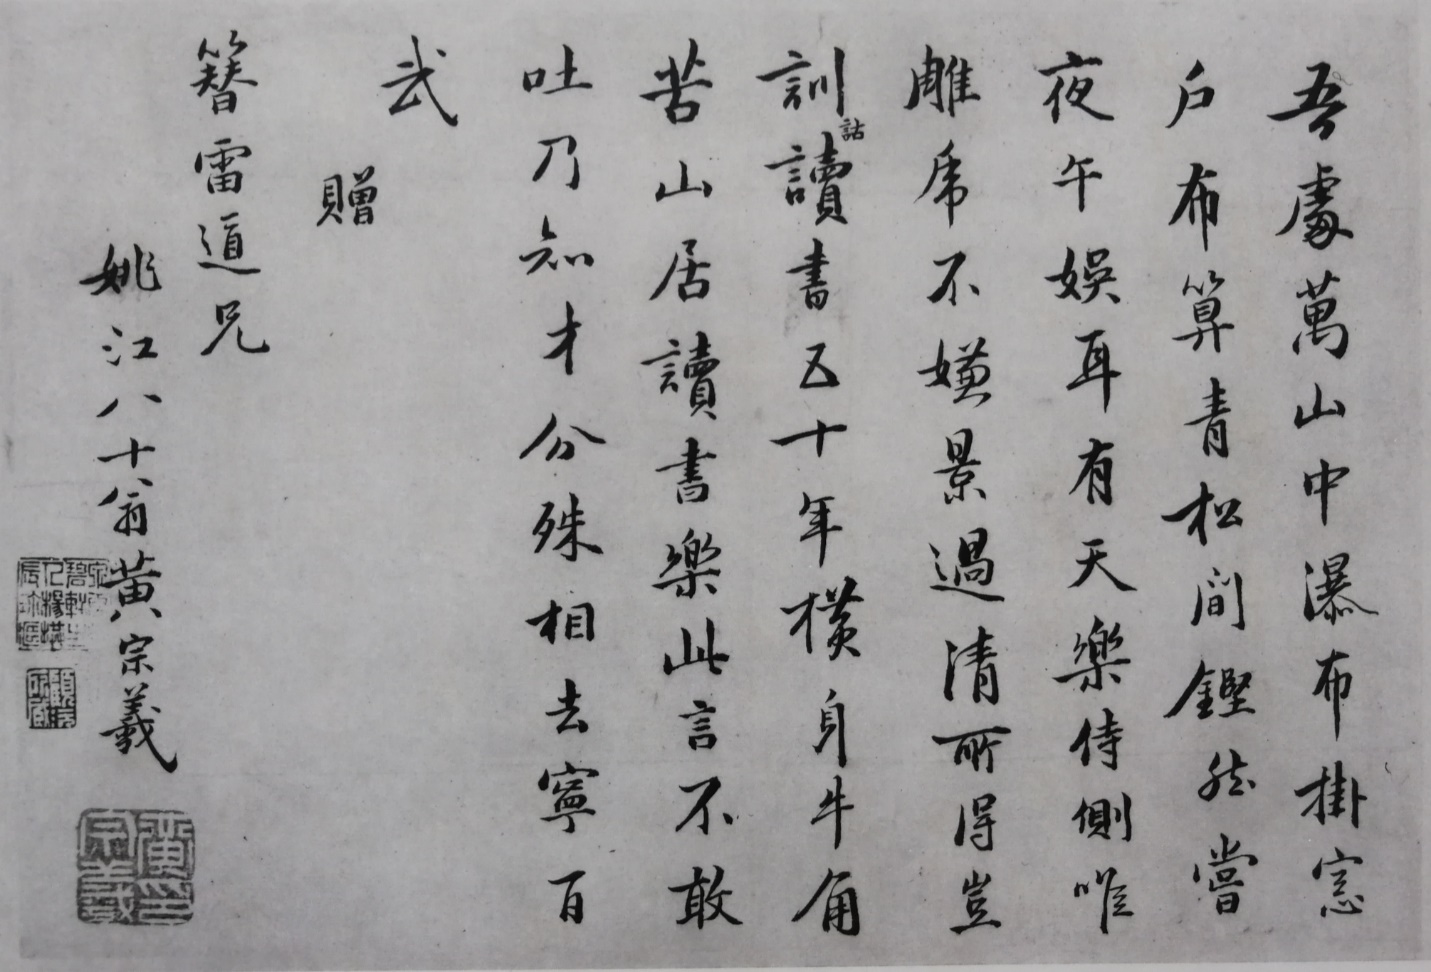 吾處萬山中瀑布掛窓
戶布算青松間鏗然嘗
夜午娛耳有天樂侍側唯
雕虎不嫌景過清所得豈
訓詁讀書五十年橫身牛角
苦山居讀書樂此言不敢
吐乃知才分殊相去寧百
武
贈
簪雷道兄
姚江八十翁黃宗羲
黃宗羲印